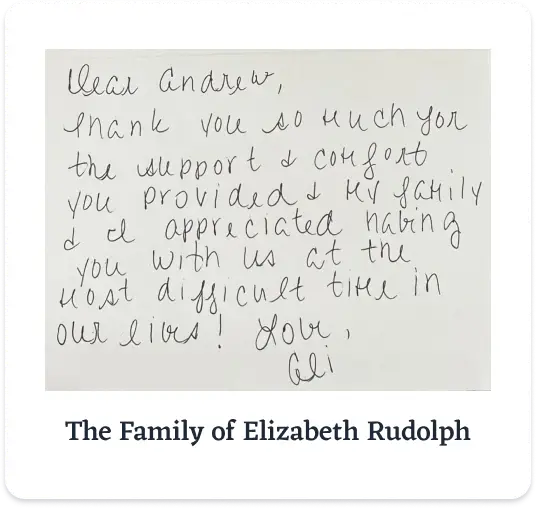 Dear Andrew,
Thank you so much for
the support & comfort
you provided & my family
& I appreciated having
you with us at the
most difficult time in
our lives! Love,
Ali
The Family of Elizabeth Rudolph